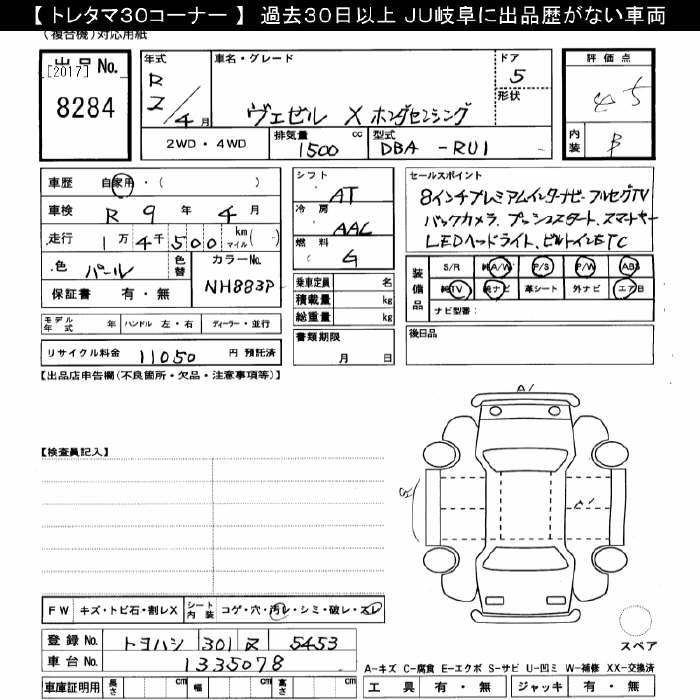 【 トレタマ30コーナー 】 過去30日以上 JU岐阜に出品歴がない車両
（複合機）対応用紙
出品 No.
[2017]
8284
年式
R
2/4月
車名・グレード
ヴェゼル X ホンダセンシング
ドア
5
形状
2WD・4WD
排気量
1500 cc
型式
DBA -RU1
評価点
4.5
内装
B
車歴 自家用・( )
車検 R 9 年 4 月
走行 1 万 4 千 5 0 0 km マイル ( )
色 パール
色替
カラーNo.
NH883P
保証書 有・無
モデル年式 年
ハンドル 左・右
ディーラー・並行
リサイクル料金 11050 円 預託済
シフト
AT
冷房
AAC
燃料
G
乗車定員 名
積載量 kg
総重量 kg
書類期限
月 日
セールスポイント
8インチプレミアムインターナビ・フルセグTV
バックカメラ、プッシュスタート、スマートキー
LEDヘッドライト、ビルトインETC
装備品
S/R 純A/W P/S P/W ABS
純TV 純ナビ 革シート 外ナビ エアB
ナビ型番：
後日品
【出品店申告欄（不良箇所・欠品・注意事項等）】
A1
【検査員記入】
A1
FW キズ・トビ石・割レX
シート内装 コゲ・穴・汚レ・シミ・破レ・スレ
登録 No. トヨハシ 301 ヌ 5453
車台 No. 1335078
車庫証明用 長さ cm 幅 cm 高さ cm
スペア
A-キズ C-腐食 E-エクボ S-サビ U-凹ミ W-補修 XX-交換済
工具 有・無 ジャッキ 有・無